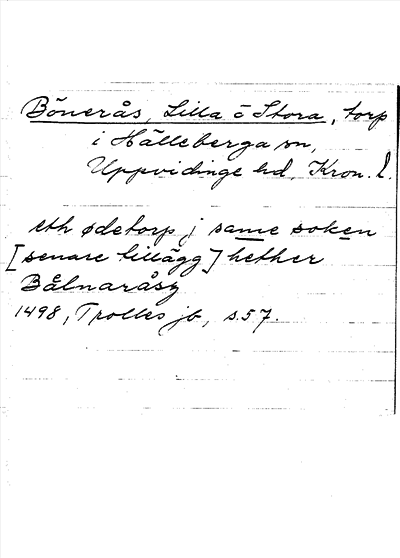 Bönerås, Lilla o Stora, torp
i Hälleberga sn,
Uppvidinge hd, Kron. l.
eth ødetorp j same soken
[senare tillägg] hether
Bålnaråsz
1498, Trolles jb, s. 57.